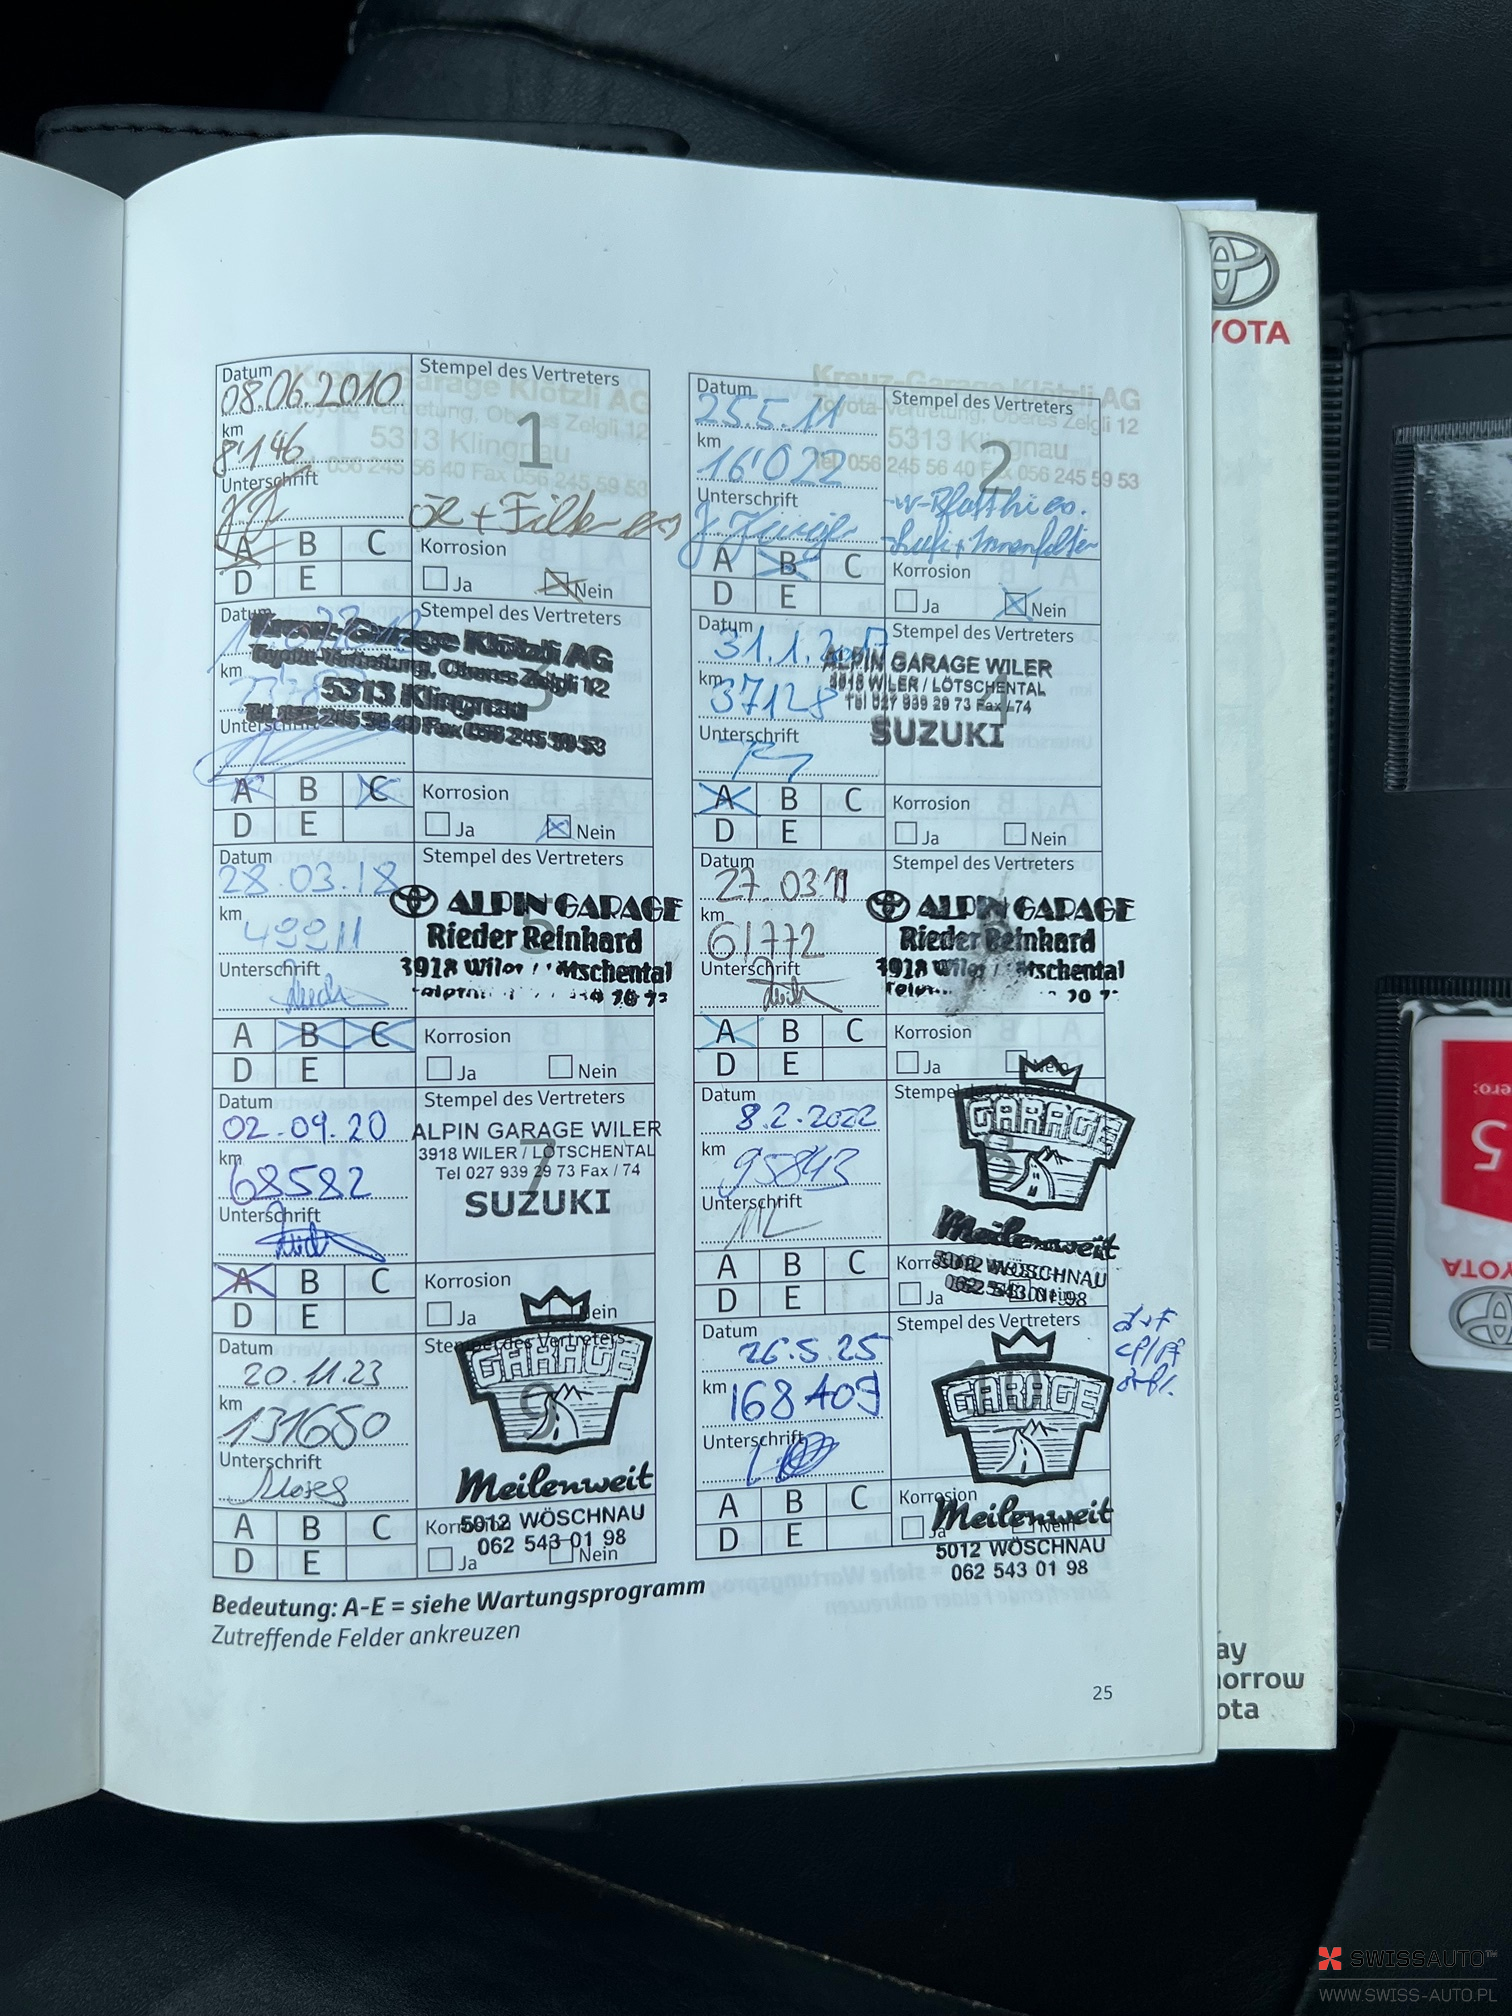 Datum
08.06.2010
Stempel des Vertreters
1
Kreuz-Garage Klötzli AG
Toyota-Vertretung, Oberes Zelgli 12
5313 Klingnau
Tel. 056 245 56 40 Fax 056 245 59 53
km
8'146
Unterschrift
+ Filter
A B C
D E
Korrosion
Ja Nein
Datum
25.5.11
Stempel des Vertreters
2
Kreuz-Garage Klötzli AG
Toyota-Vertretung, Oberes Zelgli 12
5313 Klingnau
Tel. 056 245 56 40 Fax 056 245 59 53
km
16'022
Unterschrift
A B C
D E
Korrosion
Ja Nein
Datum
Stempel des Vertreters
3
Kreuz-Garage Klötzli AG
Toyota-Vertretung, Oberes Zelgli 12
5313 Klingnau
Tel. 056 245 56 40 Fax 056 245 59 53
km
Unterschrift
A B C
D E
Korrosion
Ja Nein
Datum
31.1.2017
Stempel des Vertreters
4
ALPIN GARAGE WILER
3918 WILER / LÖTSCHENTAL
Tel 027 939 29 73 Fax / 74
SUZUKI
km
37128
Unterschrift
A B C
D E
Korrosion
Ja Nein
Datum
28.03.18
Stempel des Vertreters
5
ALPIN GARAGE
Rieder Reinhard
3918 Wiler
km
49911
Unterschrift
A B C
D E
Korrosion
Ja Nein
Datum
27.03
Stempel des Vertreters
ALPIN GARAGE
Rieder Reinhard
3918 Wiler
km
61772
Unterschrift
A B C
D E
Korrosion
Ja Nein
Datum
02.09.20
Stempel des Vertreters
7
ALPIN GARAGE WILER
3918 WILER / LÖTSCHENTAL
Tel 027 939 29 73 Fax / 74
SUZUKI
km
68582
Unterschrift
A B C
D E
Korrosion
Ja Nein
Datum
8.2.2022
Stempel des Vertreters
8
GARAGE
Meilenweit
5012 WÖSCHNAU
062 543 01 98
km
95843
Unterschrift
A B C
D E
Korrosion
Ja Nein
Datum
20.11.23
Stempel des Vertreters
9
GARAGE
Meilenweit
5012 WÖSCHNAU
062 543 01 98
km
131650
Unterschrift
A B C
D E
Korrosion
Ja Nein
Datum
26.5.25
Stempel des Vertreters
10
GARAGE
Meilenweit
5012 WÖSCHNAU
062 543 01 98
km
168409
Unterschrift
A B C
D E
Korrosion
Ja Nein
Bedeutung: A-E = siehe Wartungsprogramm
Zutreffende Felder ankreuzen
25
YOTA
ay
orrow
ota
ero:
5
TOYO
SWISSAUTO™
WWW.SWISS-AUTO.PL